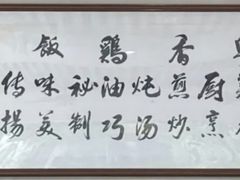 厨烹
香煎炒
炖汤
鷄油巧
秘制
飯味美
传揚